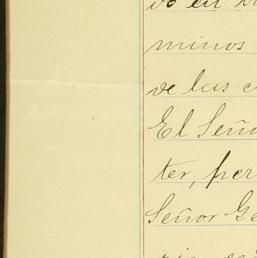 vo en
minos
de las c
El Seño
ter, per
Señor Ge